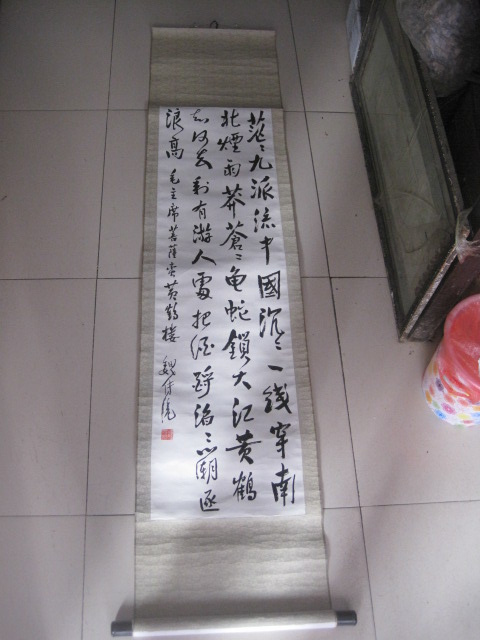 茫々九派流中國沉々一线穿南
北煙雨莽蒼々龟蛇鎖大江黄鶴
知何去剩有游人處把酒酹滔々心潮逐
浪高 毛主席菩薩蛮黄鹤楼 魏传统